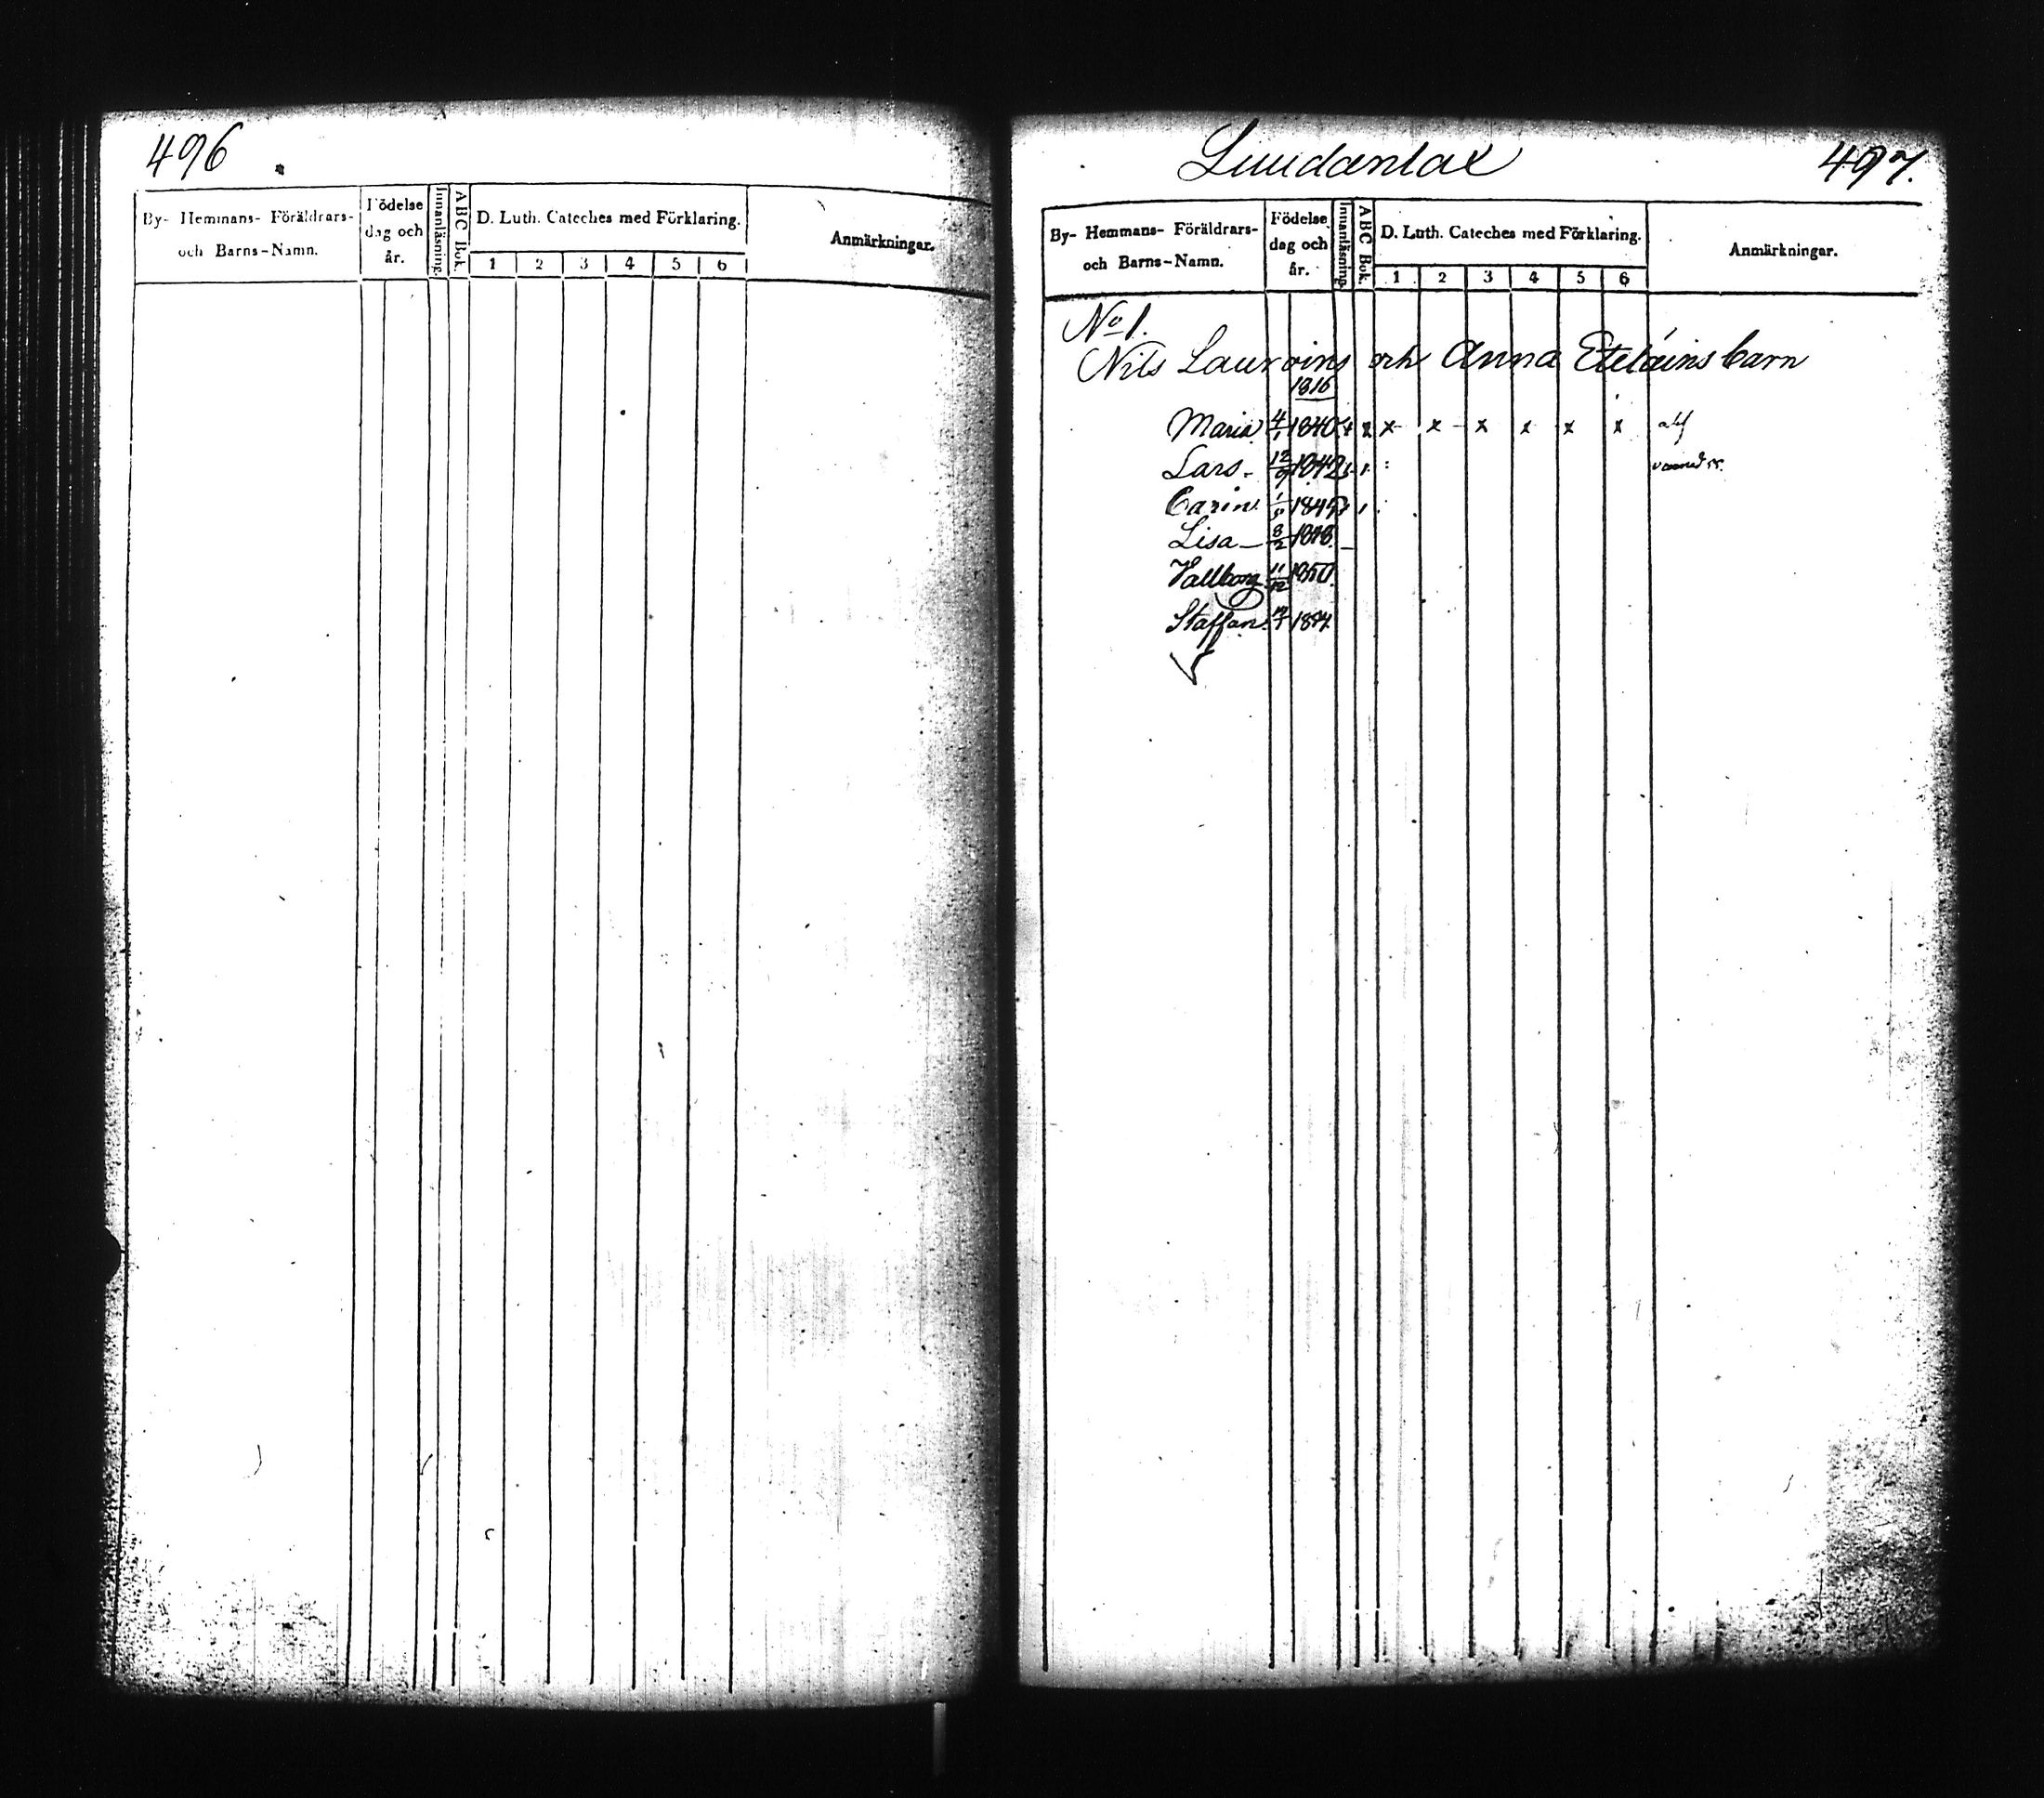 496
By- Hemmans- Föräldrars-
och Barns-Namn.
Födelse
dag och
år.
Innanläsning.
ABC Bok.
D. Luth. Cateches med Förklaring.
1 2 3 4 5 6
Anmärkningar.
497.
By- Hemmans- Föräldrars-
och Barns-Namn.
Födelse
dag och
år.
Innanläsning.
ABC Bok.
D. Luth. Cateches med Förklaring.
1 2 3 4 5 6
Anmärkningar.
No 1.
Nils och Anna barn
1816
Maria 4/1 1840 x x x x x x x x
Lars. 12/9 1842
Carin 1/5
Lisa 8/2
Vallborg 11/12 1850.
Staffan.